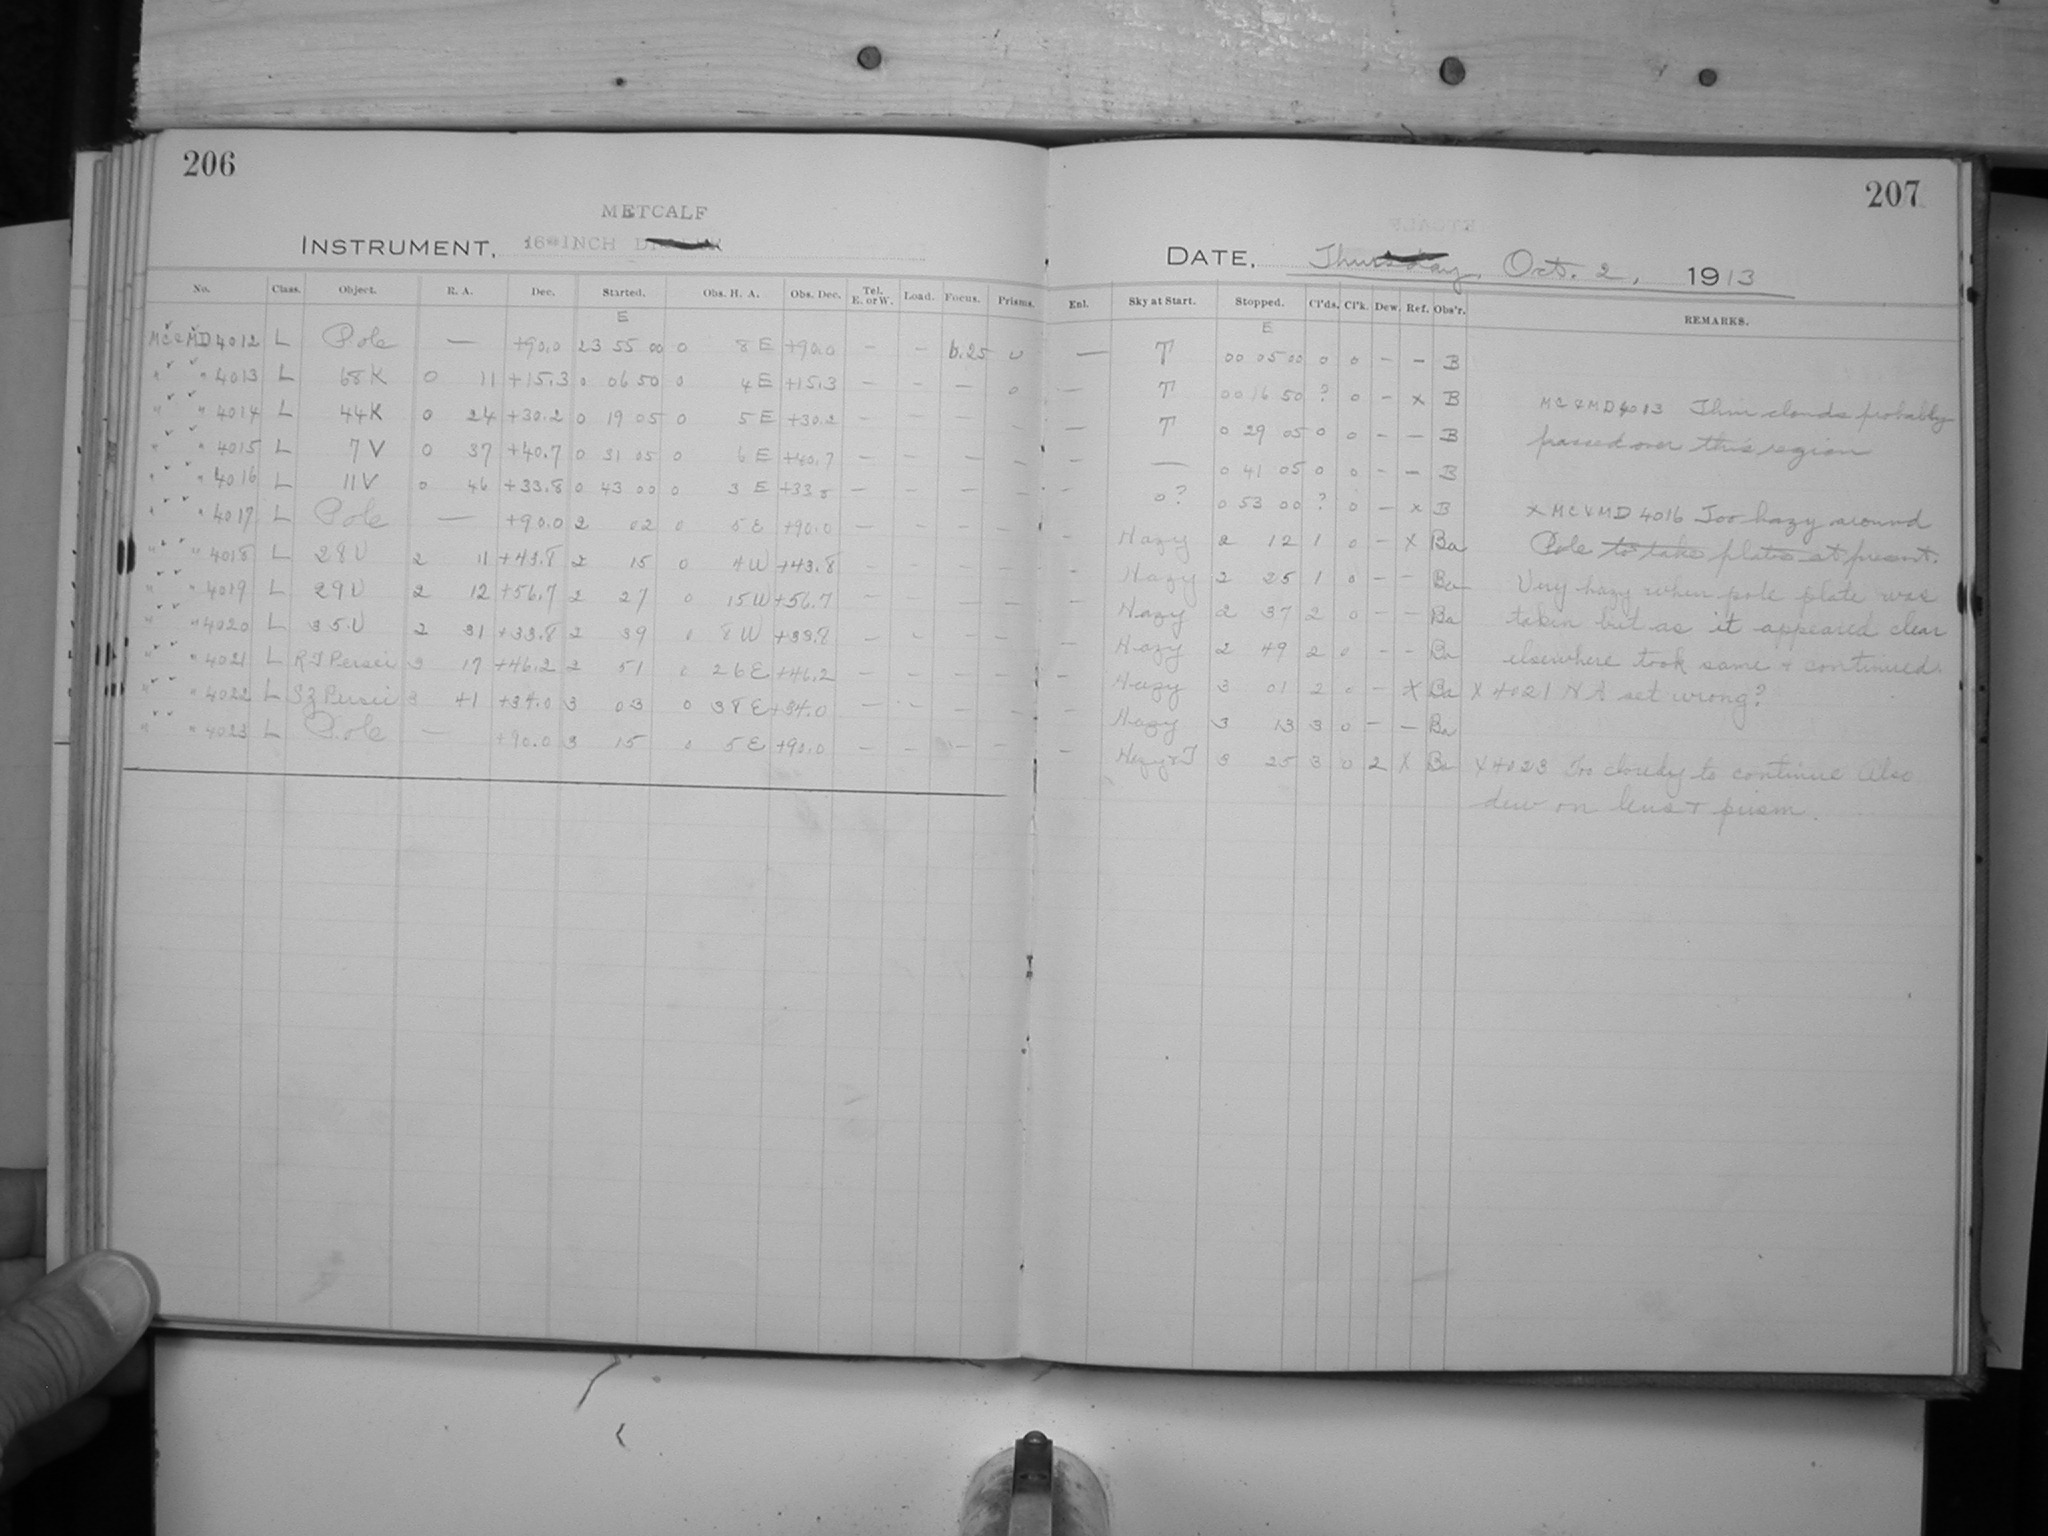 206
METCALF
INSTRUMENT, 16-INCH
No. Class. Object. R. A. Dec. Started. Obs. H. A. Obs. Dec. Tel. E. or W. Load. Focus. Prisms.
E
MC & MD 4012 L Pole — +90.0 23 55 00 0 8 E +90.0 – – 6.25 0
" " 4013 L 68K 0 11 +15.3 0 06 50 0 4 E +15.3 – – – 0
" " 4014 L 44K 0 24 +30.2 0 19 05 0 5 E +30.2 – – – –
" " 4015 L 7V 0 37 +40.7 0 31 05 0 6 E +40.7 – – – –
" " 4016 L 11V 0 46 +33.8 0 43 00 0 3 E +33.8 – – – –
" " 4017 L Pole — +90.0 2 02 0 5 E +90.0 – – – –
" " 4018 L 28U 2 11 +43.8 2 15 0 4W +43.8 – – – –
" " 4019 L 29U 2 12 +56.7 2 27 0 15W +56.7 – – – –
" " 4020 L 35U 2 31 +33.8 2 39 0 8W +33.8 – – – –
" " 4021 L RT Persei 3 17 +46.2 2 51 0 26E +46.2 – – – –
" " 4022 L SZ Persei 3 41 +34.0 3 03 0 38E +34.0 – – – –
" " 4023 L Pole — +90.0 3 15 0 5E +90.0 – – – –
207
DATE, Thursday, Oct. 2, 1913
Enl. Sky at Start. Stopped. Cl'ds. Cl'k. Dew. Ref. Obs'r. REMARKS.
E
— T 00 05 00 0 0 – – B
— T 00 16 50 ? 0 – x B MC & MD 4013 Thin clouds probably
— T 0 29 05 0 0 – – B passed over this region
– — 0 41 05 0 0 – – B
0? 0 53 00 ? 0 – x B x MC & MD 4016 Too hazy around
– Hazy 2 12 1 0 – x Ba Pole to take plates at present.
– Hazy 2 25 1 0 – – Ba Very hazy when pole plate was
– Hazy 2 37 2 0 – – Ba taken but as it appeared clear
– Hazy 2 49 2 0 – – Ba elsewhere took same + continued.
– Hazy 3 01 2 0 – x Ba x 4021 HA set wrong?
– Hazy 3 13 3 0 – – Ba
– Hazy & T 3 25 3 0 2 x Ba x 4023 Too cloudy to continue Also
dew on lens + prism.